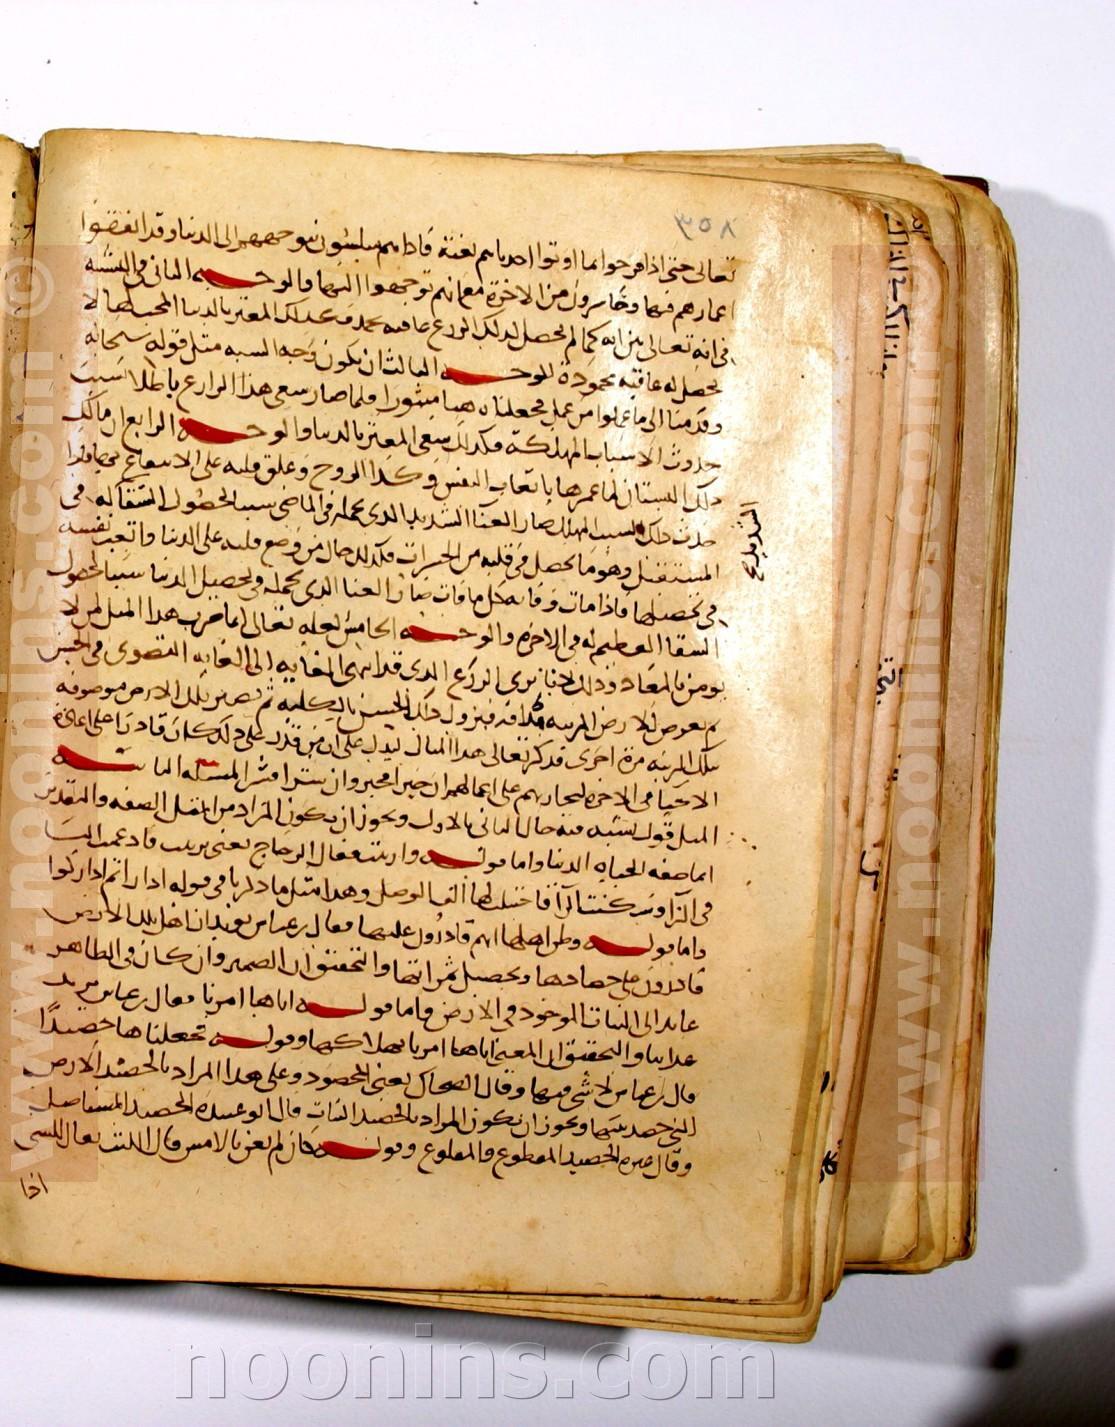 ٣٥٨
تعالى حتى اذا فرحوا بما اوتوا اخذناهم بغتة فاذا هم مبلسون نعم وجههم الى الدنيا وقد انفقوا
اعمارهم فيها وخاسرون من الاخرة مع انهم توجهوا اليها والوجه الثانى فى التشبيه
فى انه تعالى بين انه كما لم يحصل لذلك الزرع عاقبة تحمد فكذلك المغتر بالدنيا المحب لها لا
يحصل له عاقبة محمودة الوجه الثالث ان يكون وجه التشبيه مثل قوله سبحانه
وقدمنا الى ما عملوا من عمل فجعلناه هبا منثورا فلما صار سعى هذا الزارع باطلا بسبب
حدوث الاسباب المهلكة فكذلك سعى المغتر بالدنيا والوجه الرابع ان مالك
ذلك البستان لما عمرها باتعاب النفس وكد الروح وعلق قلبه على الانتفاع بها فاذا
حدث ذلك السبب المهلك صار العنآ الشديد الذى تحمله فى الماضى سببا لحصول الشقآ له فى
المستقبل وهو ما يحصل فى قلبه من الحسرات فكذلك حال من وضع قلبه على الدنيا واتعب نفسه
فى تحصيلها فاذا مات وفاته كل ما فات صار العنا الذى تحمله فى تحصيل الدنيا سببا لحصول
الشقا العظيم له فى الاخرة والوجه الخامس لعله تعالى انما ضرب هذا المثل لمن لا
يومن بالمعاد وذلك لانا نرى الزرع الذى قد انتهى الى الغاية القصوى فى الحسن
ثم يعرض للارض المزينة به آفة فيزول ذلك الحسن بالكلية ثم تصير تلك الارض موصوفة
بتلك الزينة مرة اخرى فذكر تعالى هذا المثال ليدل على ان من قدر على ذلك كان قادرا على اعادة
الاحيا فى الاخرة ليجازيهم على اعمالهم ان خيرا فخير وان شرا فشر المسئلة الثانية
المثل قول يشبه فيه حال الثانى بالاول ويجوز ان يكون المراد من المثل الصفة والتقدير
انما صفة الحياة الدنيا واما قوله وازينت فقال الزجاج يعنى تزينت فادغمت التا
فى الزا وسكنت الزا فاجتلبت لها الف الوصل وهذا مثل ما ذكرنا فى قوله ادارأتم اداركوا
واما قوله وظن اهلها انهم قادرون عليها فقال ابن عباس يريد ان اهل تلك الارض
قادرون على حصادها وتحصيل ثمراتها والتحقيق ان الضمير وان كان فى الظاهر
عايد الى النبات الموجود فى الارض واما قوله اتاها امرنا فقال ابن عباس يريد
عذابنا والتحقيق ان المعنى اتاها امرنا بهلاكها وقوله فجعلناها حصيدا
قال ابن عباس لا شى فيها وقال الضحاك يعنى المحصود وعلى هذا المراد بالحصيد الارض
التى حصد نبتها ويجوز ان يكون المراد بالحصيد النبات قال ابو عبيدة الحصيد المستاصل
وقال غيره الحصيد المقطوع والمقلوع وقوله كان لم تغن بالامس قال الليث يقال للشى
اذا
الشديد
www.noonins.com ©
www.noonins.com ©
noonins.com